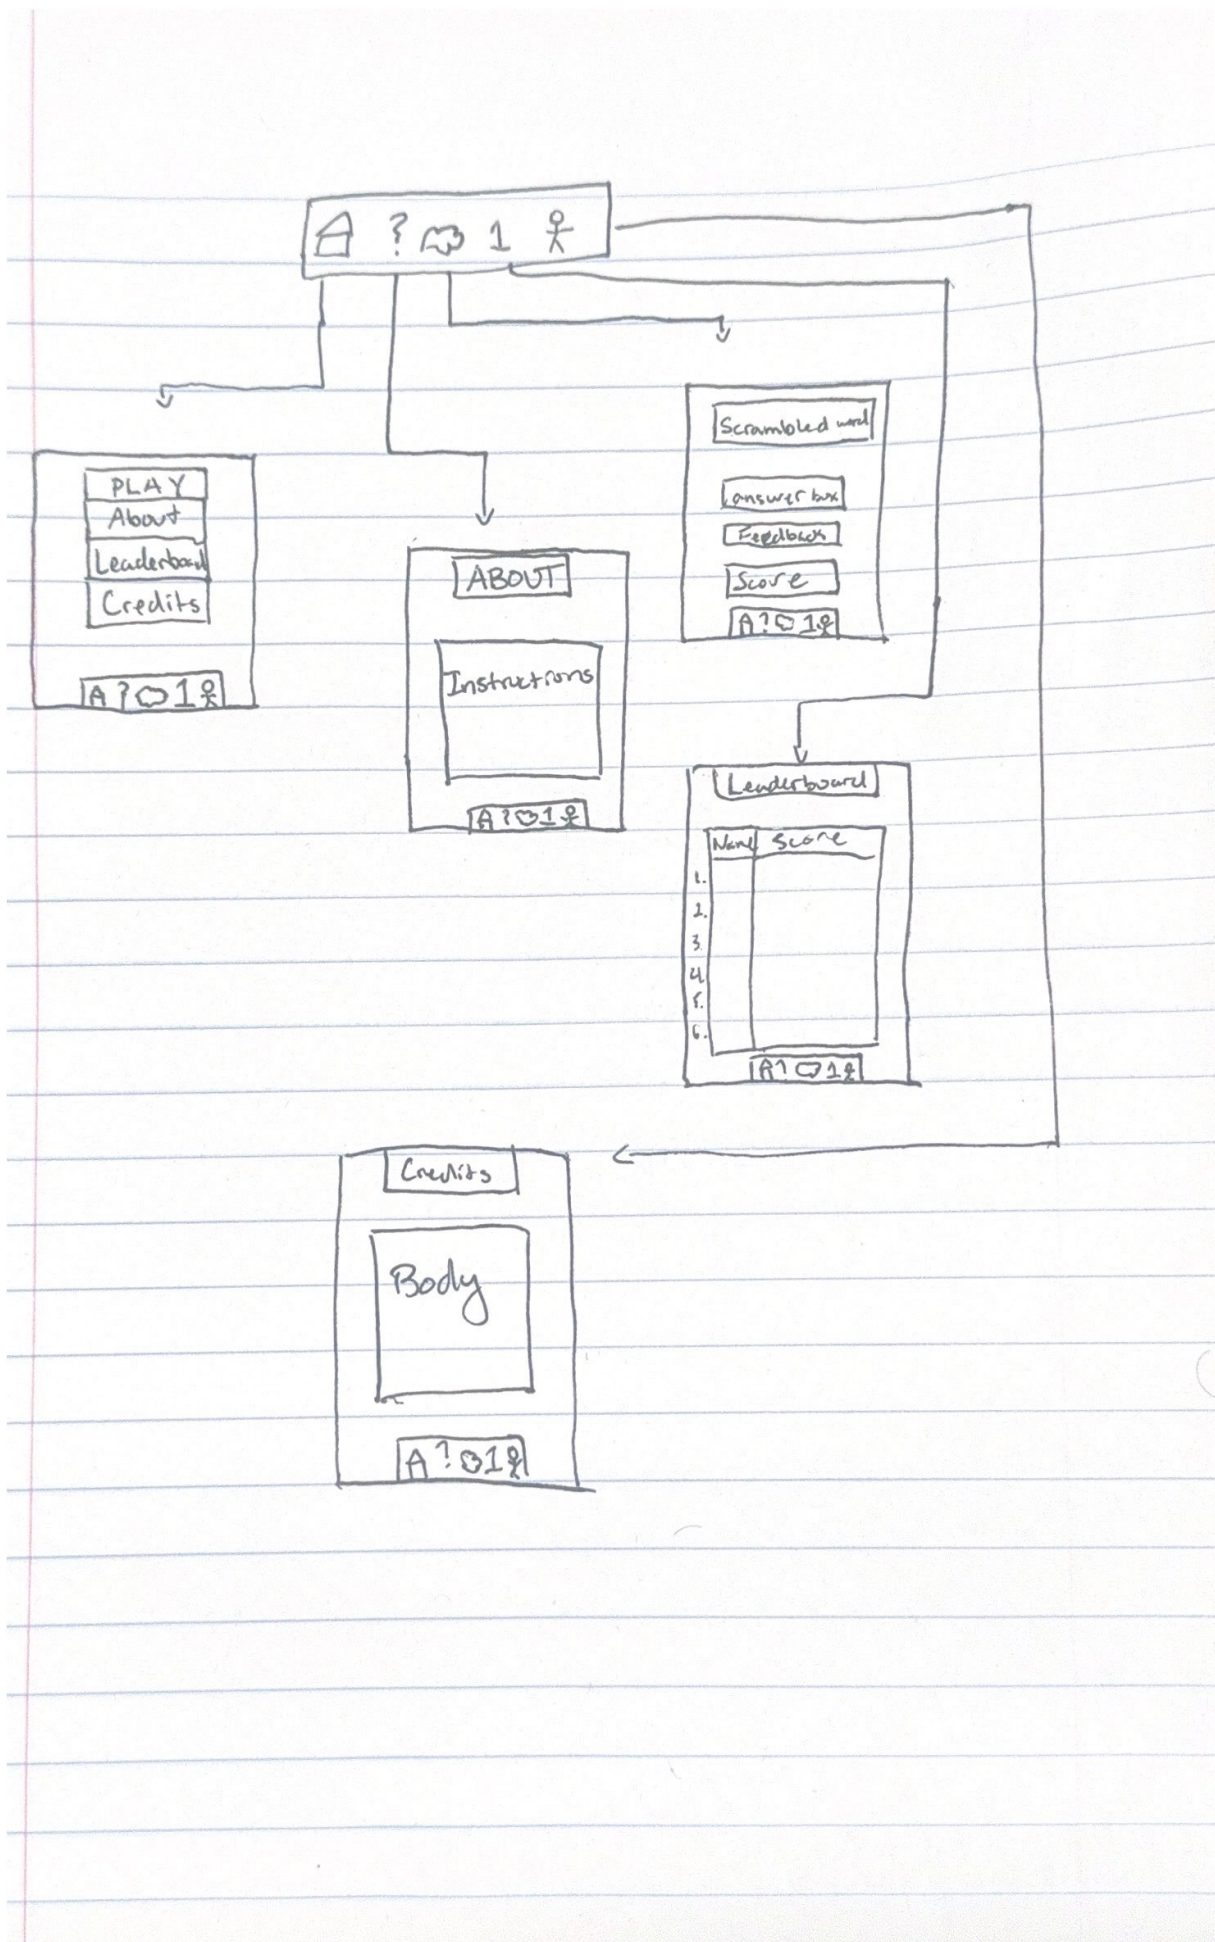 ? 1
PLAY
About
Leaderboard
Credits
A ? 1
ABOUT
Instructions
A ? 1
Scrambled word
answer box
Feedback
Score
A ? 1
Leaderboard
Name Score
1.
2.
3.
4.
5.
6.
A ? 1
Credits
Body
A ? 1